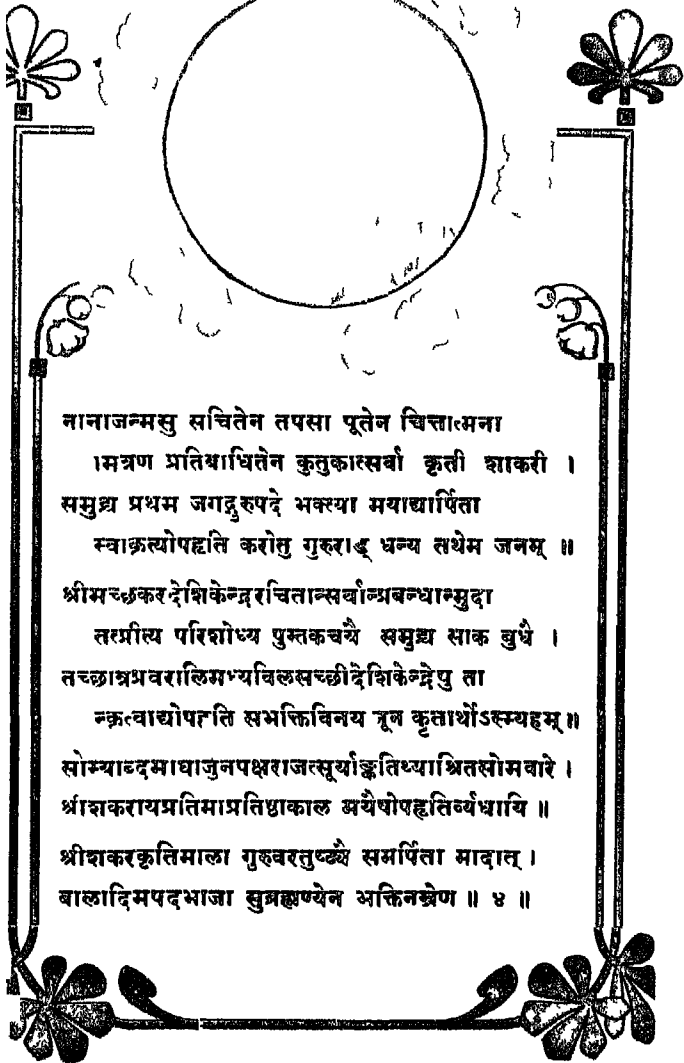 नानाजन्मसु सचितेन तपसा पूतेन चित्तात्मना
मित्रण प्रतिबाधितेन कुतुकात्सर्वा कृती शाकरी ।
समुद्र्य प्रथम जगद्गुरुपदे भक्त्या मयाद्यार्पिता
स्वाकृत्योपहृति करोतु गुरुराड् धन्य तथेम जनम् ॥
श्रीमच्छकरदेशिकेन्द्ररचितान्सर्वान्प्रबन्धान्मुदा
तत्प्रीत्य परिशोध्य पुस्तकचयै समुद्र्य साक बुधै ।
तच्छात्रप्रवरालिमध्यविलसच्छीदेशिकेन्द्रेषु ता
न्कृत्वाद्योपहृति सभक्तिविनय नून कृतार्थोऽस्म्यहम् ॥
सोम्याब्दमाघाजुनपक्षराजत्सूर्याङ्कतिथ्याश्रितसोमवारे ।
श्रीशकरायप्रतिमाप्रतिष्ठाकाल अथैषोपहृतिर्व्यधायि ॥
श्रीशकरकृतिमाला गुरुवरतुष्ट्यै समर्पिता मादात् ।
बालादिमपदभाजा सुब्रह्मण्येन भक्तिनम्रेण ॥ ४ ॥